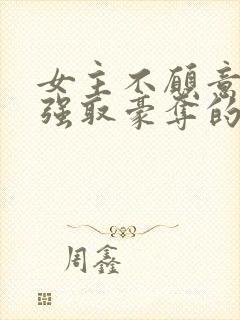 女主不愿意
强取豪夺的
周鑫